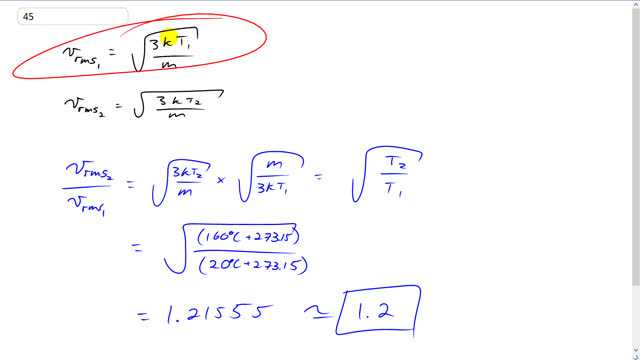 45
v_rms₁ = √(3kT₁/m)
v_rms₂ = √(3kT₂/m)
v_rms₂/v_rms₁ = √(3kT₂/m) × √(m/3kT₁) = √(T₂/T₁)
= √((160°C+273.15)/(20°C+273.15))
= 1.21555 ≃ 1.2